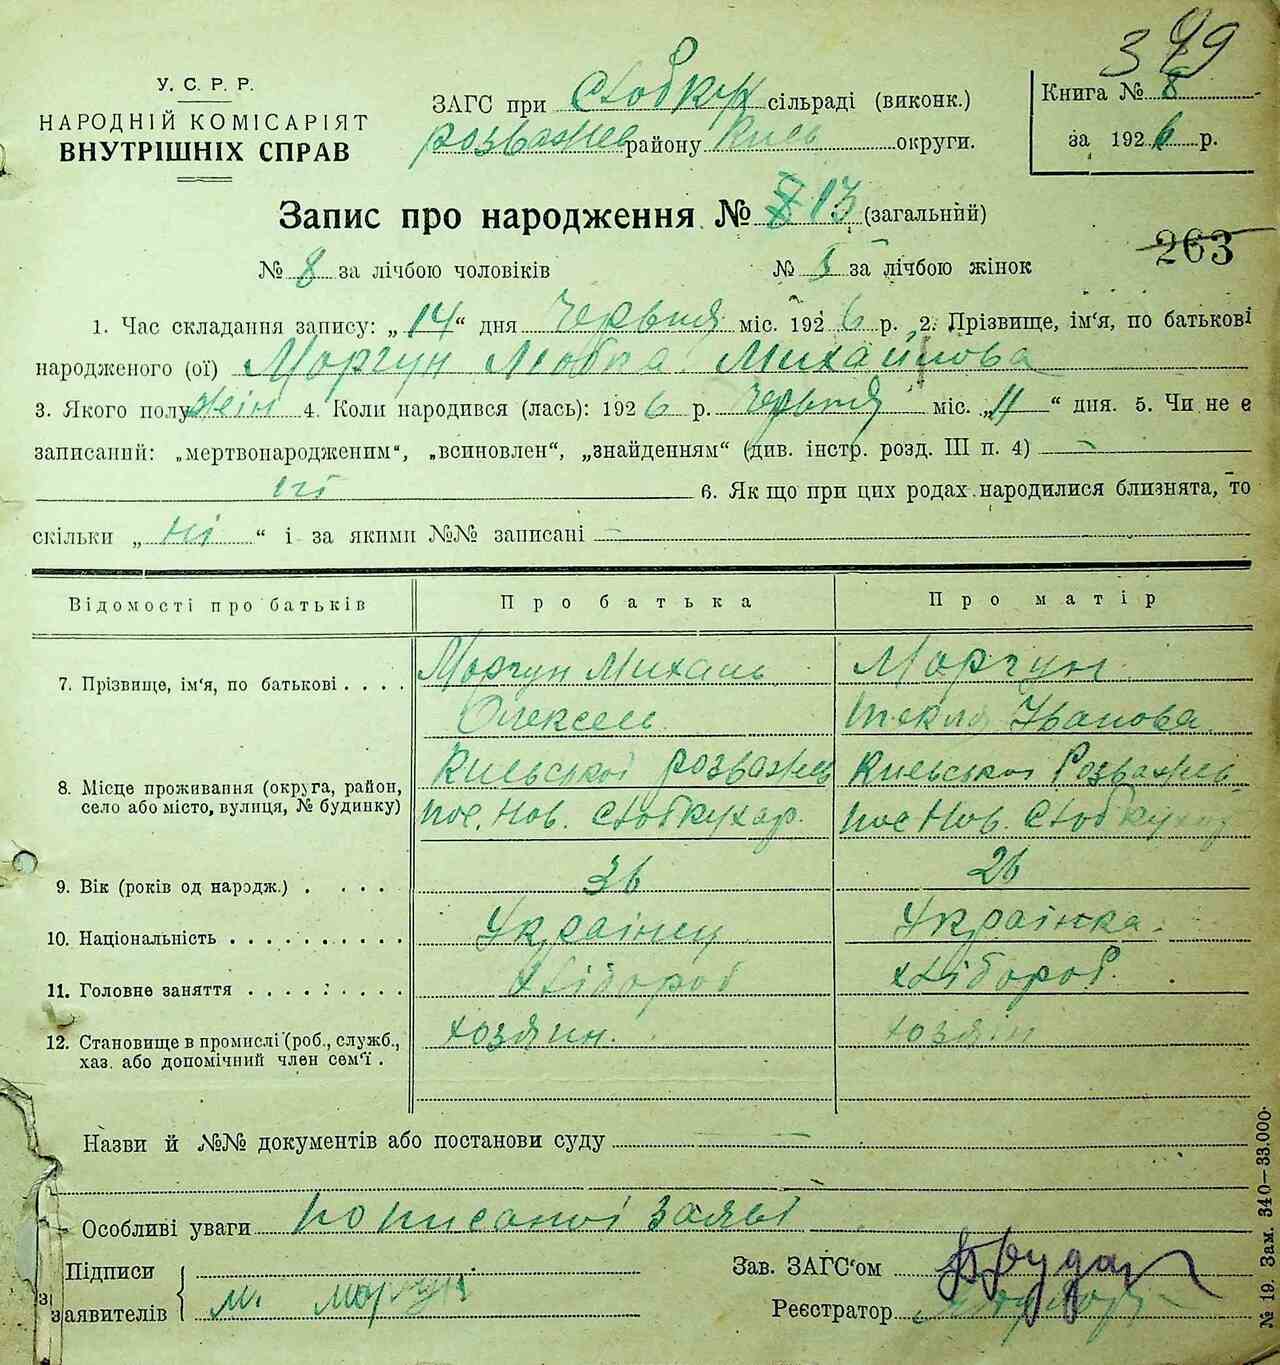 349
У. С. Р. Р.
НАРОДНІЙ КОМІСАРІЯТ
ВНУТРІШНІХ СПРАВ
ЗАГС при Стобкух сільраді (виконк.)
розважев району Київ округи.
Книга № 8
за 1926 р.
Запис про народження № 13 (загальний)
263
№ 8 за лічбою чоловіків № 5 за лічбою жінок
1. Час складання запису: „14“ дня Червня міс. 1926 р. 2. Прізвище, ім'я, по батькові
народженого (ої) Моргун Любка Михайлова
3. Якого полу жін 4. Коли народився (лась): 1926 р. червня міс. „11“ дня. 5. Чи не є
записаний: „мертвонародженим“, „всиновлен“, „знайденням“ (див. інстр. розд. III п. 4) —
ні 6. Як що при цих родах народилися близнята, то
скільки „ні“ і за якими №№ записані —
Відомості про батьків Про батька Про матір
7. Прізвище, ім'я, по батькові . . . . Моргун Михаль Олексеев Моргун Текля Іванова
8. Місце проживання (округа, район, село або місто, вулиця, № будинку) Киевської розважев пос. Нов. Стобкухар. Киевської Розважев пос Нов. Стобкухар
9. Вік (років од народж.) . . . . 36 26
10. Національність . . . . . . . . . . Українец Українка
11. Головне заняття . . . . . . . . . Хлібороб хлібороб.
12. Становище в промислі (роб., служб., хаз. або допомічний член сем'ї . хозяин. хозяін
Назви й №№ документів або постанови суду —
Особливі уваги по писаної заяві
Підписи
заявителів М. Моргун
Зав. ЗАГС'ом
Реєстратор
№ 19. Зам. 340—33.000.